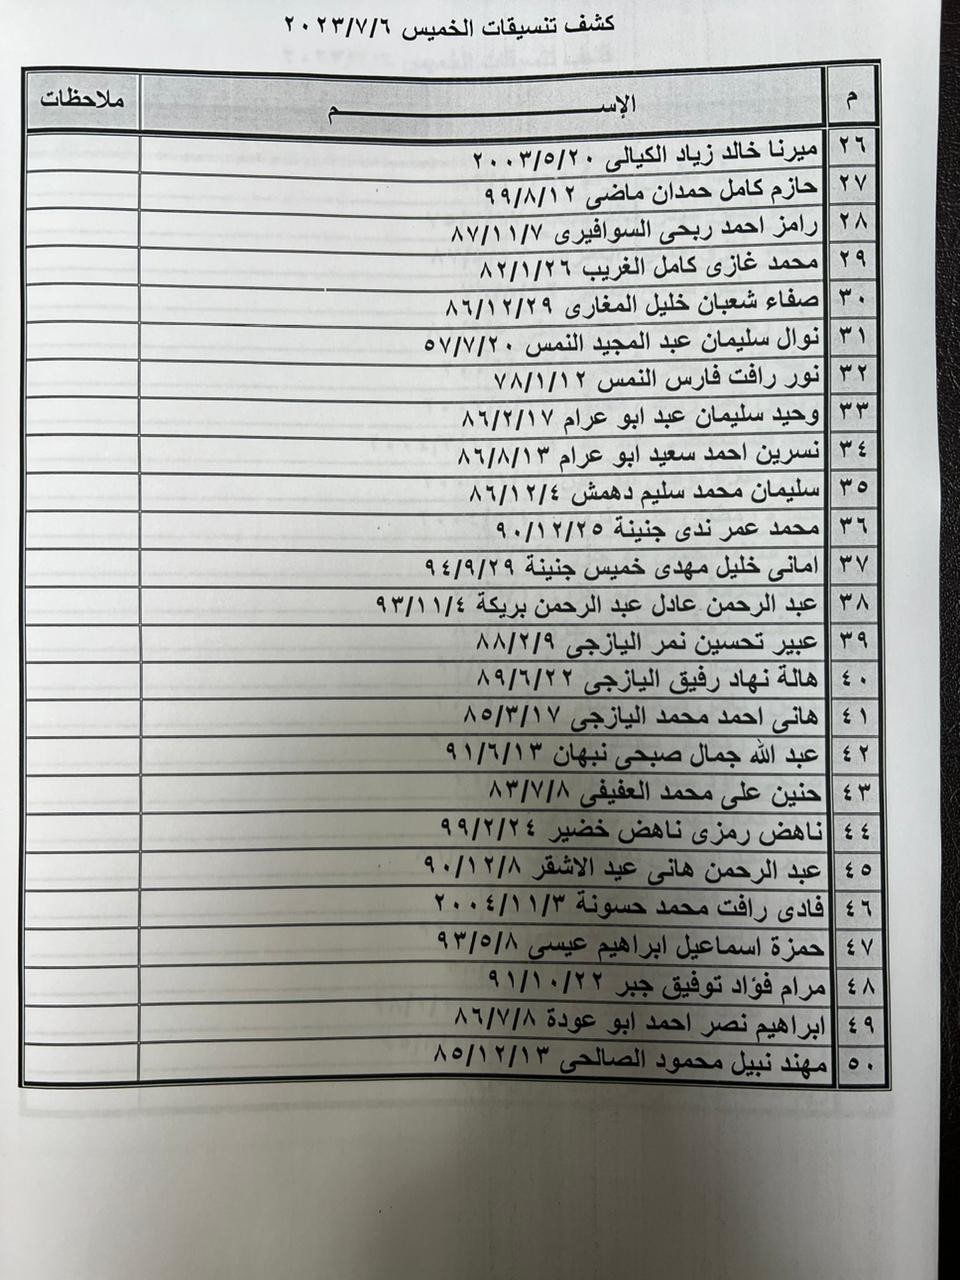 كشف تنسيقات الخميس ٢٠٢٣/٧/٦
م الإســــــــم ملاحظات
٢٦ ميرنا خالد زياد الكيالى ٢٠٠٣/٥/٢٠
٢٧ حازم كامل حمدان ماضى ٩٩/٨/١٢
٢٨ رامز احمد ربحى السوافيرى ٨٧/١١/٧
٢٩ محمد غازى كامل الغريب ٨٢/١/٢٦
٣٠ صفاء شعبان خليل المغارى ٨٦/١٢/٢٩
٣١ نوال سليمان عبد المجيد النمس ٥٧/٧/٢٠
٣٢ نور رافت فارس النمس ٧٨/١/١٢
٣٣ وحيد سليمان عبد ابو عرام ٨٦/٢/١٧
٣٤ نسرين احمد سعيد ابو عرام ٨٦/٨/١٣
٣٥ سليمان محمد سليم دهمش ٨٦/١٢/٤
٣٦ محمد عمر ندى جنينة ٩٠/١٢/٢٥
٣٧ امانى خليل مهدى خميس جنينة ٩٤/٩/٢٩
٣٨ عبد الرحمن عادل عبد الرحمن بريكة ٩٣/١١/٤
٣٩ عبير تحسين نمر اليازجى ٨٨/٢/٩
٤٠ هالة نهاد رفيق اليازجى ٨٩/٦/٢٢
٤١ هانى احمد محمد اليازجى ٨٥/٣/١٧
٤٢ عبد الله جمال صبحى نبهان ٩١/٦/١٣
٤٣ حنين على محمد العفيفى ٨٣/٧/٨
٤٤ ناهض رمزى ناهض خضير ٩٩/٢/٢٤
٤٥ عبد الرحمن هانى عيد الاشقر ٩٠/١٢/٨
٤٦ فادى رافت محمد حسونة ٢٠٠٤/١١/٣
٤٧ حمزة اسماعيل ابراهيم عيسى ٩٣/٥/٨
٤٨ مرام فؤاد توفيق جبر ٩١/١٠/٢٢
٤٩ ابراهيم نصر احمد ابو عودة ٨٦/٧/٨
٥٠ مهند نبيل محمود الصالحى ٨٥/١٢/١٣